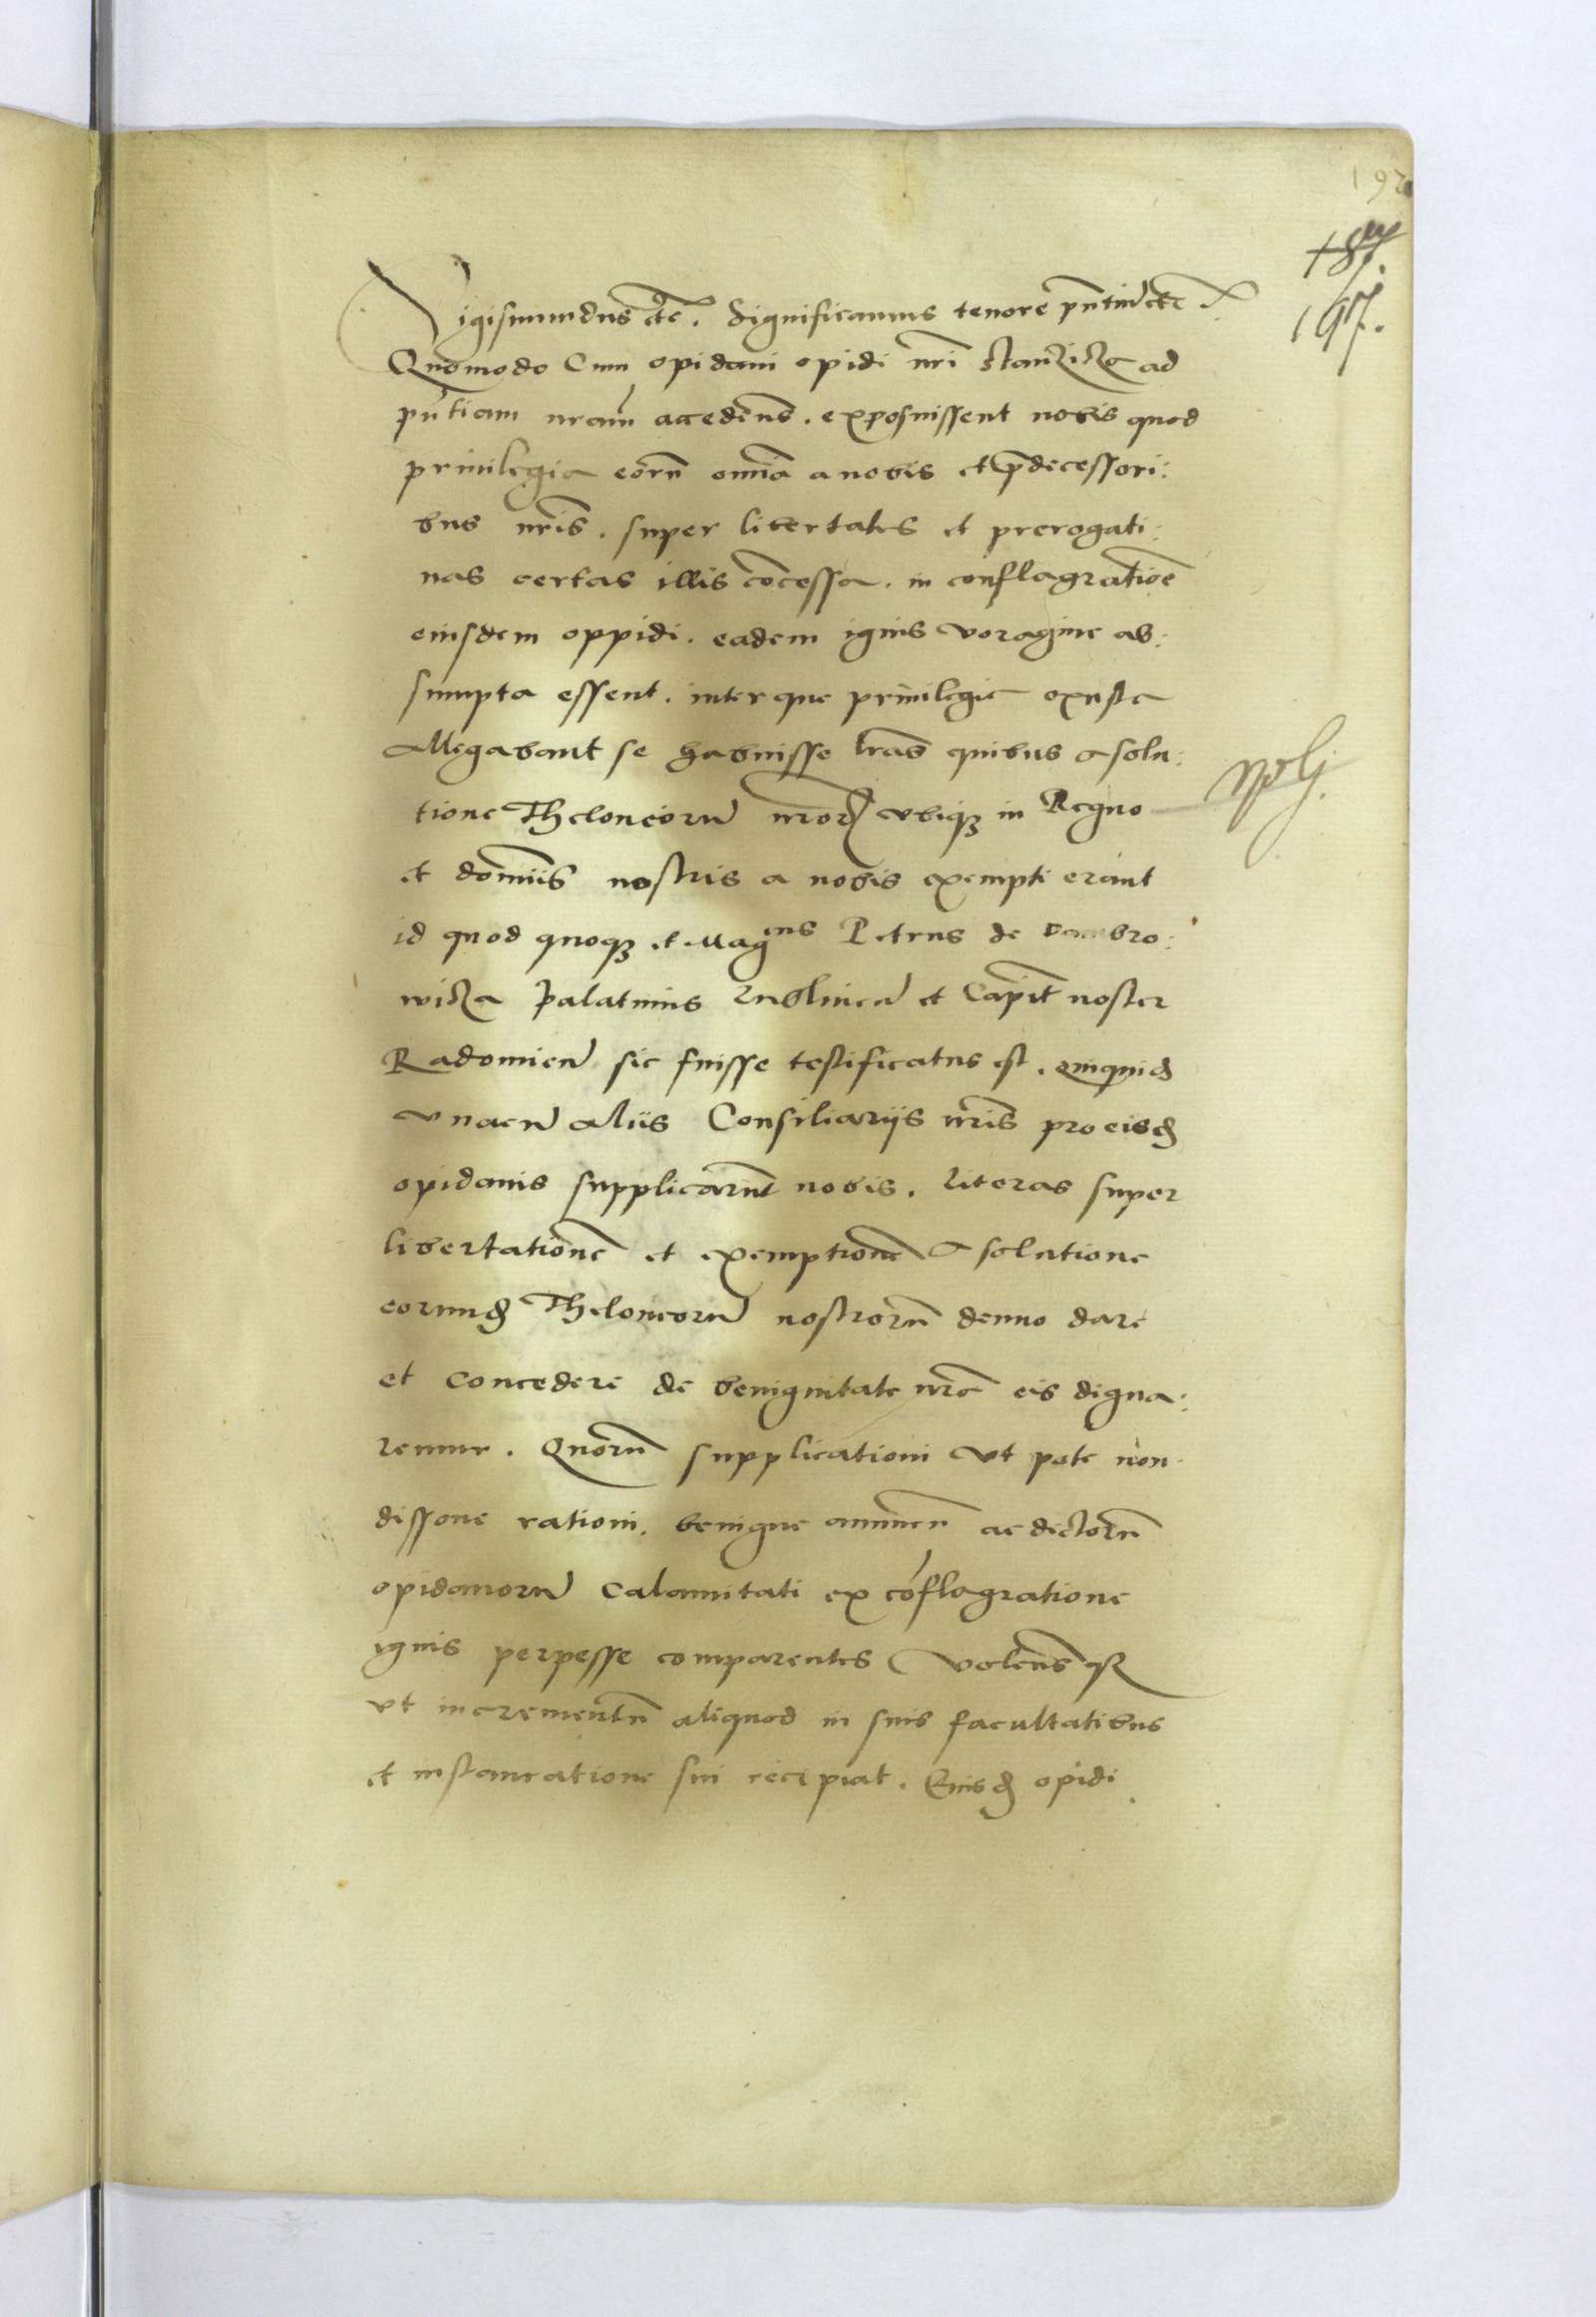 192
187.
197.
Sigismundus etc. Significamus tenore pñtiũ etc.
Quomodo Cum opidani opidi nr̃i ad
pñtiam nram̃ accedeñs. exposuissent nobis quod
priuilegia eorũ omĩa a nobis et p̃decessori:
bus nr̃is. super libertates et prerogati:
uas certas illis cõcessa. in conflagratioẽ
eiusdem oppidi. eadem ignis voragine ab:
sumpta essent. inter que priuilegia exusta
allegabant se habuisse lr̃as quibus a solu:
tione Theloneorũ nr̃oꝝ vbiqꝫ in Regno
et domiĩs nostris a nobis exempti erant
id quod quoqꝫ et Mag​cus Petrus de Dambro:
wicza Palatinus Lublineñ et Capit̃ noster
Radomieñ sic fuisse testificatus est. quiquidẽ
vnacũ aliis Consiliariis nr̃is pro eisdẽ
opidanis supplicarũt nobis. literas super
libertationẽ et exemptionẽ a solutione
eorundẽ Theloneorũ nostrorũ denuo dare
et concedere de benignitate nr̃a eis digna:
remur. Quorũ supplicationi vt pote non
dissone rationi. benigne annueñ ac dictorũ
opidanorũ calamitati ex cõflagratione
ignis perpesse comparentes volentesqꝫ
vt incrementũ aliquod in suis facultatibus
et instauratione sui recipiat. Eiusdẽ opidi